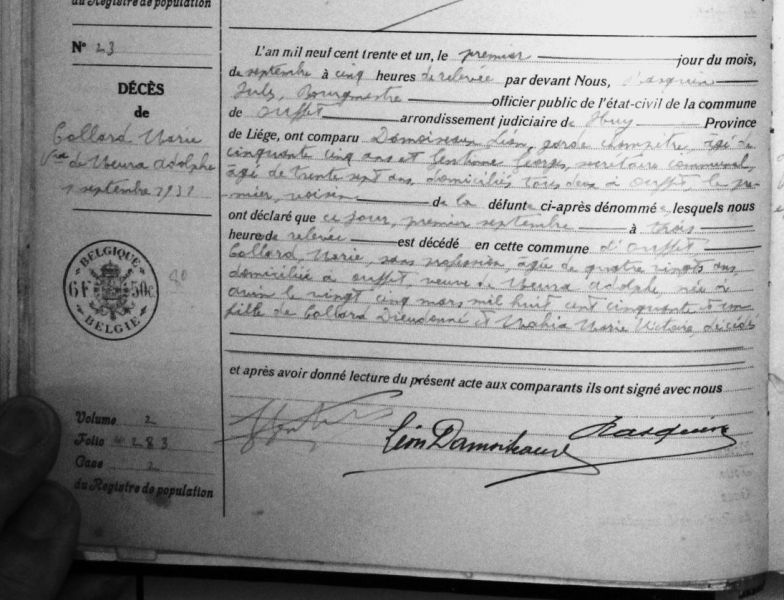 du Registre de population
N° 23
DÉCÈS
de
Collard Marie
Vve de Meura Adolphe
1 septembre 1931
BELGIQUE
6F 50c.
BELGIE
80
Volume 2
Folio 283
Case 2
du Registre de population
L'an mil neuf cent trente et un, le premier jour du mois,
de septembre à cinq heures de relevée par devant Nous,
Jules, Bourgmestre officier public de l'état-civil de la commune
de Ouffet arrondissement judiciaire de Huy Province
de Liége, ont comparu Damoiseaux Léon, garde champêtre, âgé de
cinquante cinq ans et Georges, secrétaire communal,
âgé de trente sept ans, domiciliés tous deux à Ouffet, le pre-
mier, voisin de la défunte ci-après dénommée, lesquels nous
ont déclaré que ce jour, premier septembre à trois
heures de relevée est décédé en cette commune d'Ouffet
Collard, Marie, sans profession, âgée de quatre vingts ans,
domiciliée à Ouffet, veuve de Meura Adolphe, née à
le vingt cinq mars mil huit cent cinquante et un
fille de Collard Dieudonné et Mahia Marie Victoire, décédés
et après avoir donné lecture du présent acte aux comparants ils ont signé avec nous
Léon Damoiseaux